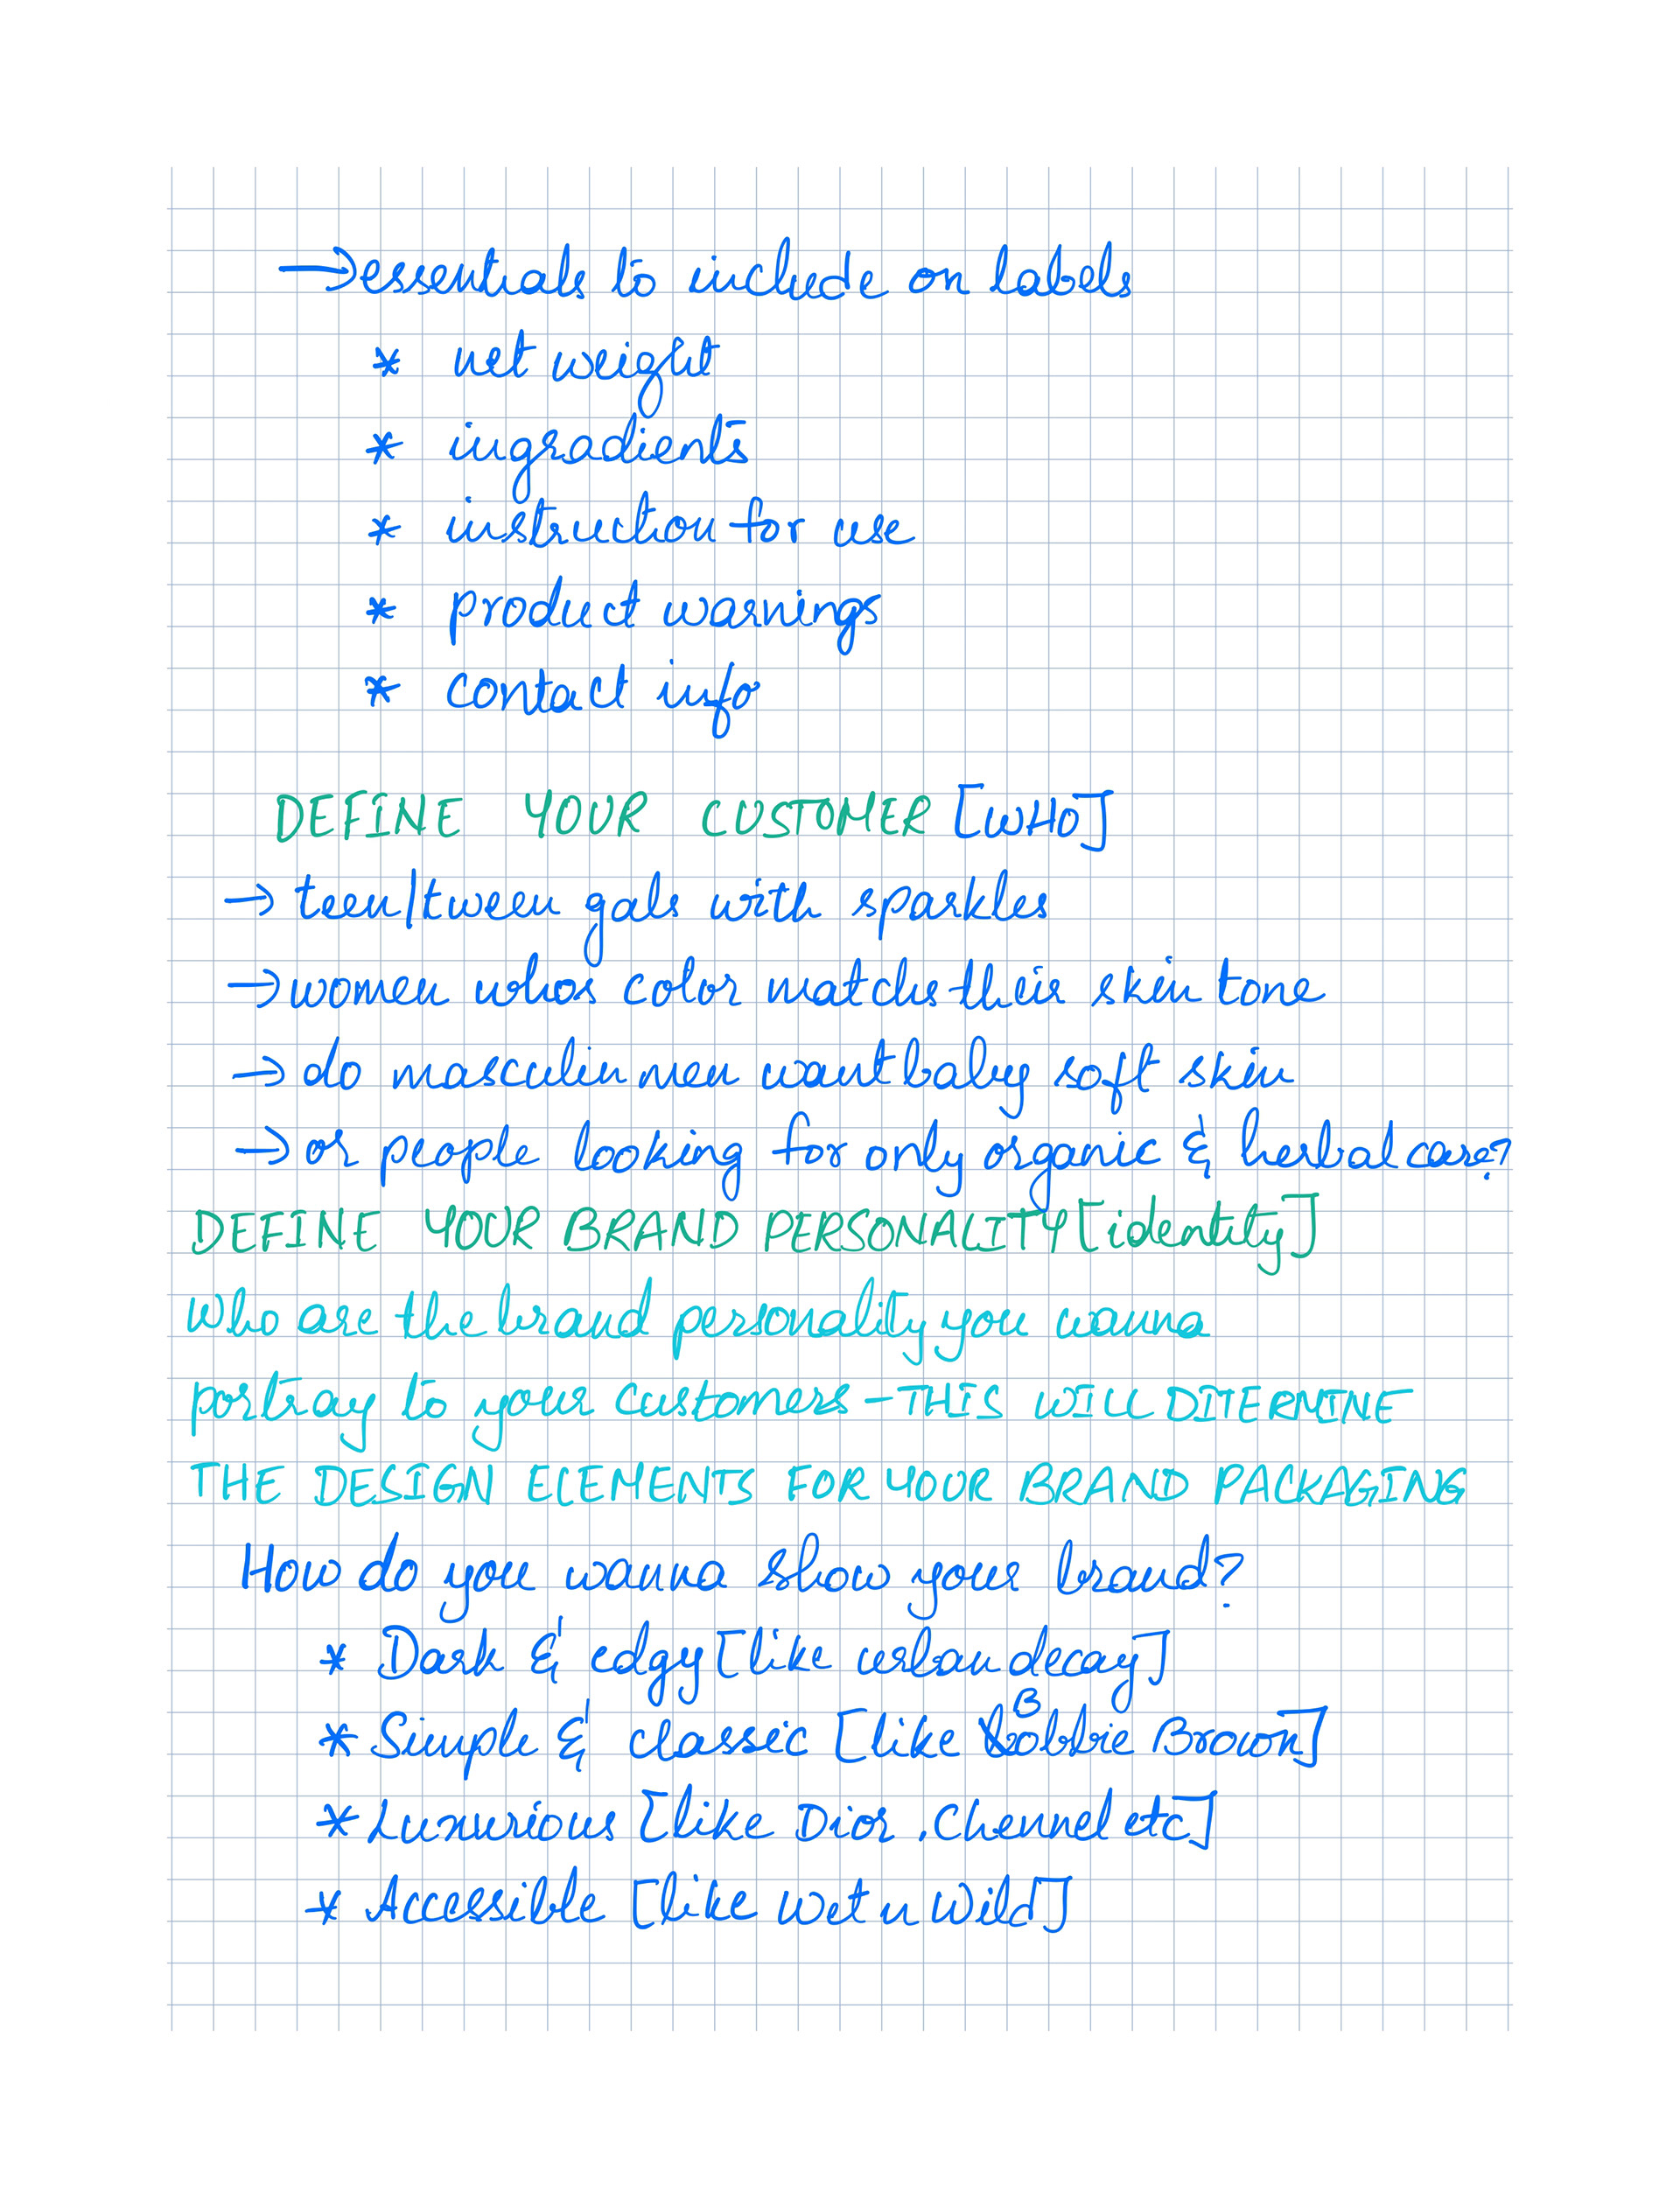 → essentials to include on labels
* net weight
* ingradients
* instruction for use
* product warnings
* contact info
DEFINE YOUR CUSTOMER [WHO]
→ teen/tween gals with sparkles
→ women whos color matchs their skin tone
→ do masculin men want baby soft skin
→ or people looking for only organic & herbal care?
DEFINE YOUR BRAND PERSONALITY [identity]
Who are the brand personality you wanna
portray to your customers - THIS WILL DITERMINE
THE DESIGN ELEMENTS FOR YOUR BRAND PACKAGING
How do you wanna show your brand?
* Dark & edgy [like urban decay]
* Simple & classic [like Bobbie Brown]
* Luxurious [like Dior, Chennel etc]
* Accessible [like wet n Wild]